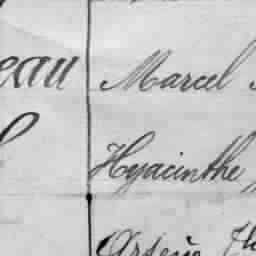 eau Marcel
Hyacinthe
Arsène